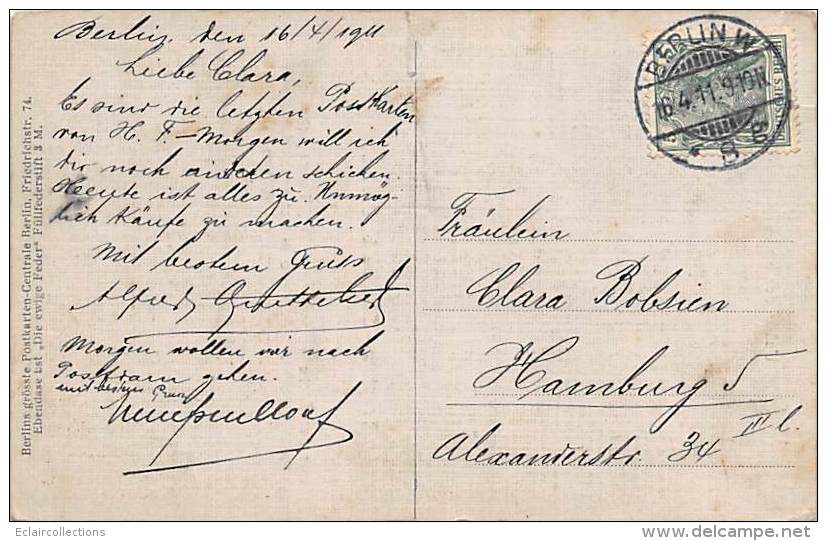 Berlin, den 16/4/1911
Liebe Clara,
Es sind die letzten Postkarten
von H. F. – Morgen will ich
dir noch anderen schicken.
Heute ist alles zu. Unmög-
lich Käufe zu machen.
Mit bestem Gruss
Alfred
Morgen wollen wir nach
Postdam gehen.
mit besten Gruss
Berlins grösste Postkarten-Centrale Berlin, Friedrichstr. 74.
Ebendase bst „Die ewige Feder" Füllfederstift 3 M.
BERLIN W
16.4.11. 9-10N.
* 8
Fräulein
Clara Bobsien
Hamburg 5
Alexanderstr. 34 II l.
Eclaircollections
www.delcampe.net